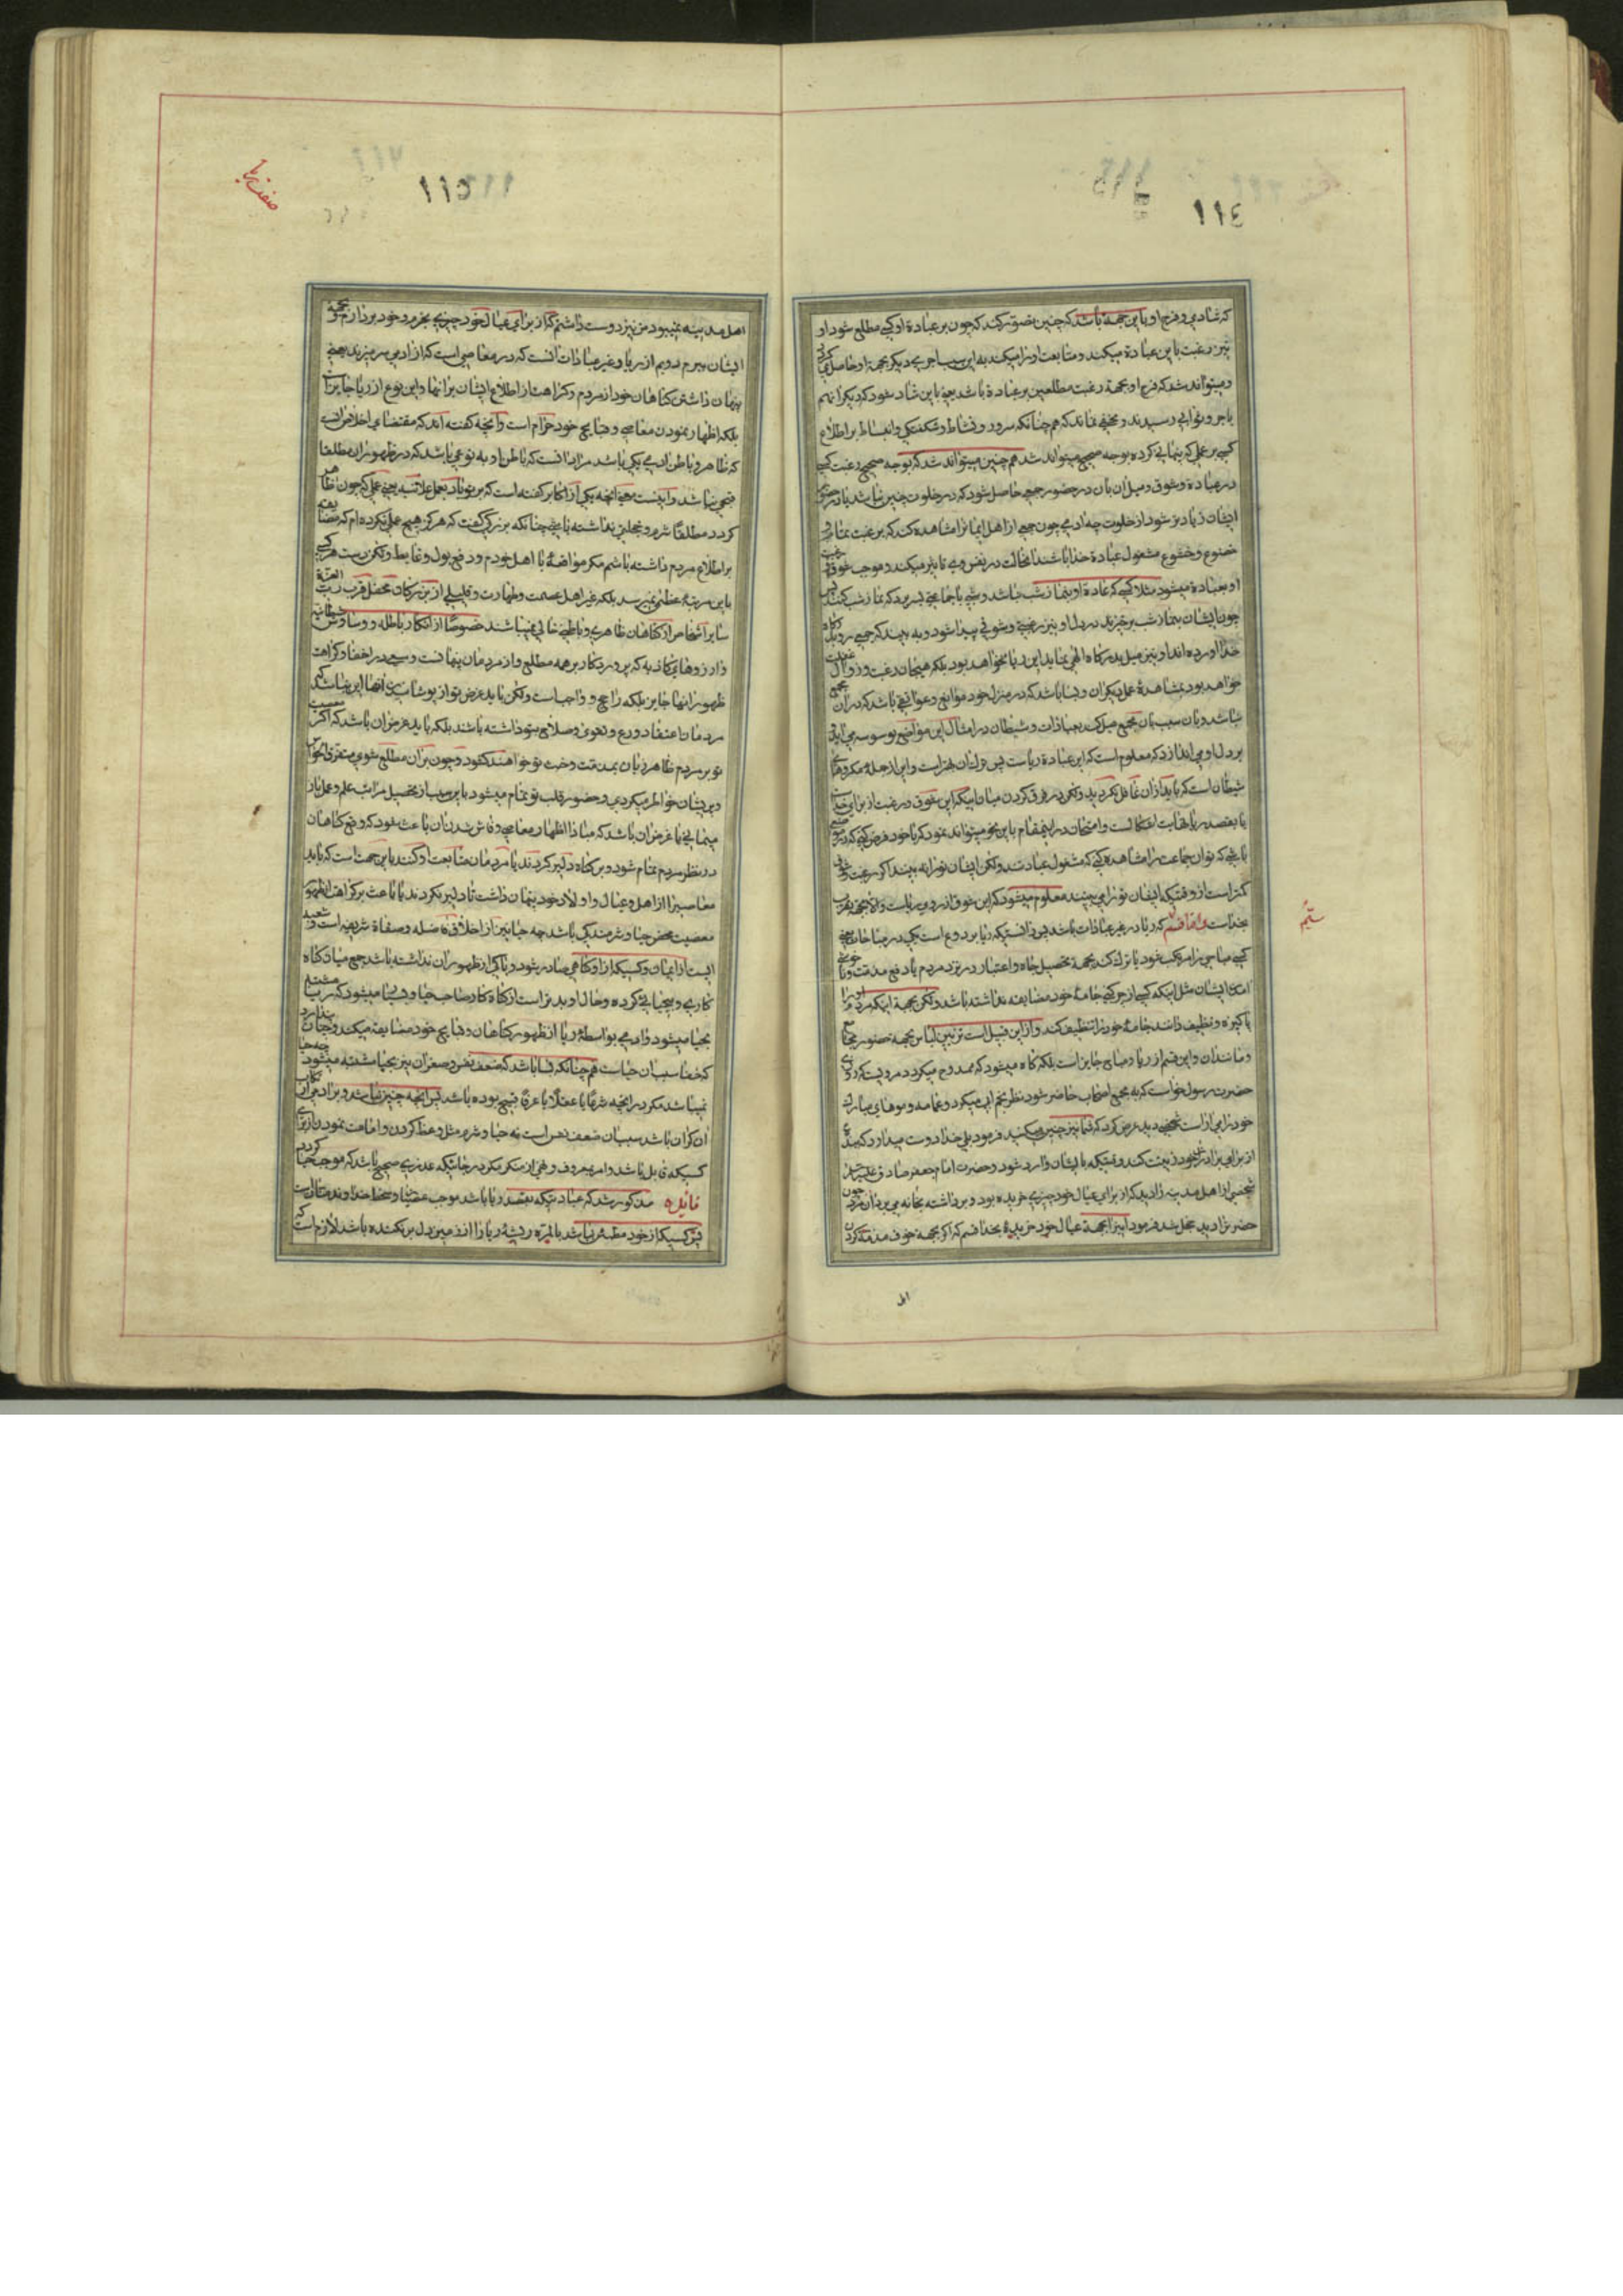 ١١٤
که شادی و فرح او باین جهة باشد که چنین تصور کند که چون بر عبادة او کسی مطلع شود او
نیز رغبت باین عبادة میکند و متابعت او را میکند باین سبب اجری دیگر بجهة او حاصل
و میتواند شد که فرح او بجهة رغبت مطلعین بر عبادة باشد یعنی باین شاد شود که دیگران هم
باجر و ثوابی رسیدند و مخفی نماند که هم چنانکه سرور و نشاط و شکفتگی و انبساط بر اطلاع
کسی بر عملی که پنهانی کرده بوجه صحیح میتواند شد هم چنین میتواند شد که بوجه صحیحی رغبت کسی
در عبادة و شوق و میل آن بان در حضور جمعی حاصل شود که در خلوت چنین نباشد یا در حضور
ایشان زیادتر شود از خلوت چه ادمی چون جمعی از اهل ایمان را مشاهده کند که برغبت تمام
خضوع و خشوع مشغول عبادة خدا باشند انحالت در نفس وی تاثیر میکند و موجب شوق
او بعبادة میشود مثلا کسی که عادة او بنماز شب نباشد و شبی با جماعتی بسر برد که نماز شب کنند
چون ایشان بنماز شب برخیزند در دل او نیز رغبتی و شوقی پیدا شود و به بیند که جمعی رو بدرگاه
خدا اورده اند او نیز میل بدرگاه الهی نماید این ریا نخواهد بود بلکه هیجان رغبت و زوال غفلت
خواهد بود بمشاهدهٔ عمل دیگران و بسا باشد که در منزل خود موانع و عوایقی باشد که در آن مجمع
نباشد و بان سبب بان مجمع میل کند بعبادات و شیطان در امثال این مواضع بوسوسه می اید
بر دل او می اندازد که معلوم است که این عبادة ریاست پس ترک آن بهتر است و این از جمله مکرهای
شیطان است که باید از ان غافل نگردید و لکن در فرق کردن میان اینکه این شوق و رغبت از برای خداست
یا بقصد ریا نهایت اشکال است و امتحان در اینمقام باین نحو میتواند نمود که با خود فرض کنی که در موضعی
باشی که تو ان جماعت را مشاهده کنی که مشغول عبادتند و لکن ایشان تو را نه بینند اگر رغبت و شوق
کمتر است از وقتیکه ایشان تو را می بینند معلوم میشود که این شوق از روی ریاست و الا بجهة تقرب
بخداست و اما قسم که ریا در غیر عبادات باشد پس دانستیکه ریا بر دو نوع است یکی در مباحات یعنی
کسی مباحی را مرتکب شود یا ترک کند بجهة تحصیل جاه و اعتبار در نزد مردم یا دفع مذمت و ناخوشی
امدن ایشان مثل اینکه کسی از چرکینی جامهٔ خود مضایقه نداشته باشد و لکن بجهة اینکه مردم او را
پاکیزه و نظیف دانند جامهٔ خود را تنظیف کند و از این قبیل است تزیین لباس بجهة حضور مجامع
و مانند ان و این قسم از ریا و مباح جایز است بلکه گاه میشود که ممدوح میگردد مرویست که روزی
حضرت رسول خواست که به مجمع اصحاب حاضر شود نظر بخم ابی میکرد و عمامه و موهای مبارک
خود را می اراست شخصی دید عرض کرد که شما نیز چنین میکنید فرمود بلی خدا دوست میدارد که بنده
از برای برادران خود زینت کند وقتیکه بایشان وارد شود و حضرت امام جعفر صادق علیه السلام
شخصی از اهل مدینه را دید که از برای عیال خود چیزی خریده بود و برداشته بخانه می برد ان مرد چون
حضرت را دید خجل شد فرمود اینرا بجهة عیال خود خریدهٔ بخدا قسم که اگر بجهة خوف مذمة کردن
اهل
ستم
١١٥
صفت ریا
اهل مدینه نمیبود من نیز دوست داشتم که از برای عیال خود چیزی بخرم و خود بردارم و بجهة
ایشان ببرم دویم از ریا در غیر عبادات انست که در معاصی است که از ادمی سر میزند یعنی
پنهان داشتن گناهان خود از مردم و کراهت از اطلاع ایشان برانها و این نوع از ریا جایز است
بلکه اظهار نمودن معاصی و قبایح خود حرام است و آنچه گفته اند که مقتضای اخلاص انست
که ظاهر و باطن ادمی یکی باشد مراد انست که باطن او به نوعی باشد که در ظهور ان مطلقا
قبحی نباشد و اینست معنی انچه یکی از اکابر گفته است که بر تو باد بعمل علانیه یعنی عملی که چون ظاهر
گردد مطلقاً شرم و خجلتی نداشته باشی چنانکه بزرگی گفت که هرگز هیچ عملی نکرده ام که مضایقه
بر اطلاع مردم داشته باشم مگر مواقعهٔ با اهل خودم و دفع بول و غایط و لکن دست هر کسی
باین مرتبهٔ عظمی نمیرسد بلکه غیر اهل عصمت و طهارت و قلیلی از بزرگان محفل قرب رب العزة
سایر اشخاص از گناهان ظاهری و باطنی خالی نمیباشند خصوصاً از افکار باطله و وساوس شیطانیه
و ارزوهای کاذبه که پروردگار بر همه مطلع و از مردمان پنهانست و سعی در اخفا و کراهت
ظهور انها جایز بلکه راجح و واجب است و لکن باید غرض تو از پوشانیدن انها این نباشد که
مردمان اعتقاد ورع و تقوی و صلاح بتو داشته باشند بلکه باید غرض ان باشد که اگر معصیت
تو بر مردم ظاهر زبان بمذمت و خبث تو خواهند گشود و چون بر ان مطلع شوی متفرق الحواس
و پریشان خواطر میگردی و حضور قلب تو تمام میشود باین سبب از تحصیل مراتب علم و عمل باز
میمانی یا غرض ان باشد که مبادا اظهار معاصی و فاش شدن ان باعث شود که وقع گناهان
در نظر مردم تمام شود و بر گناه دلیر گردند یا مردمان متابعت او کنند باین جهت است که باید
معاصی را از اهل و عیال و اولاد خود پنهان داشت تا دلیر نگردند یا باعث بر کراهت از ظهور
معصیت محض حیا و شرمندگی باشد چه حیا نیز از اخلاق فاضله و صفاة شریفه است و شعبه
ایست از ایمان و کسیکه از او گناهی صادر شود و باکی از ظهور ان نداشته باشد جمع میان گناه
کاری و بیحیائی کرده و حال او بدتر است از گناه کار صاحب حیا و بسا میشود که ریا مشتبه
بحیا میشود و ادمی بواسطهٔ ریا از ظهور گناهان و قبایح خود مضایقه میکند و چنان پندارد
که خفا سبب ان حیاست هم چنانکه بسا باشد که ضعف نفس و صغر ان نیز بحیا مشتبه میشود چه حیا
نمیباشد مگر در انچه شرعاً یا عقلاً یا عرفاً قبیح بوده باشد پس انچه چنین نباشد و بر ادمی ارتکاب
ان گران باشد سبب ان ضعف نفس است نه حیا و شرم مثل وعظ کردن و امامت نمودن از برای
کسیکه قابل باشد و امر بمعروف و نهی از منکر مگر در جائیکه عذری صحیح باشد که موجب حیا گردد
فایده مذکور شد که عبادتیکه بقصد ریا باشد موجب عقاب و سخط خداوند متعال است
پس کسیکه از خود مطمئن نباشد بالمرة و ریشهٔ ریا را از زمین دل بر نکنده باشد لازم است که